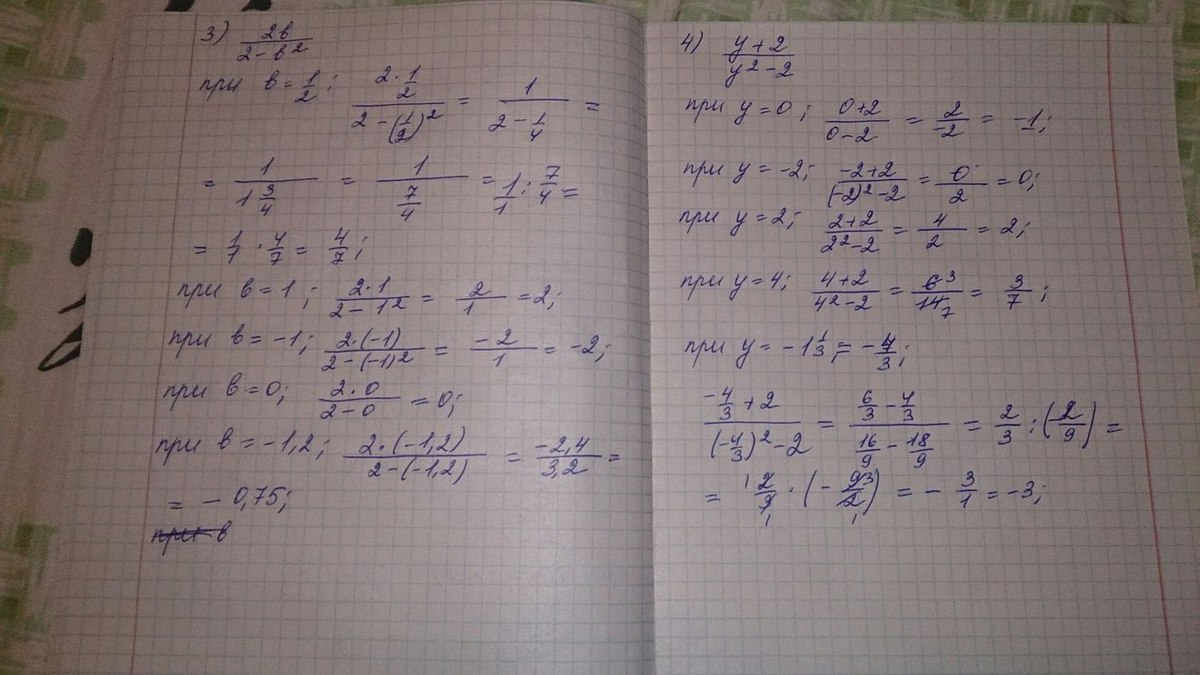 3) 2в/(2-в²)
при в=1/2; (2·1/2)/(2-(1/2)²) = 1/(2-1/4) =
= 1/(1 3/4) = 1/(7/4) = 1/1 : 7/4 =
= 1/1 · 4/7 = 4/7;
при в=1; (2·1)/(2-1²) = 2/1 = 2;
при в=-1; (2·(-1))/(2-(-1)²) = -2/1 = -2;
при в=0; (2·0)/(2-0) = 0;
при в=-1,2; (2·(-1,2))/(2-(-1,2)) = -2,4/3,2 =
= -0,75;
при в
4) (y+2)/(y²-2)
при y=0; (0+2)/(0-2) = 2/-2 = -1;
при y=-2; (-2+2)/((-2)²-2) = 0/2 = 0;
при y=2; (2+2)/(2²-2) = 4/2 = 2;
при y=4; (4+2)/(4²-2) = 6 3/14 7 = 3/7;
при y=-1 1/3; = -4/3;
(-4/3+2)/((-4/3)²-2) = (6/3-4/3)/(16/9-18/9) = 2/3 : (-2/9) =
= 1 2/3 1 · (-9 3/2 1) = -3/1 = -3;